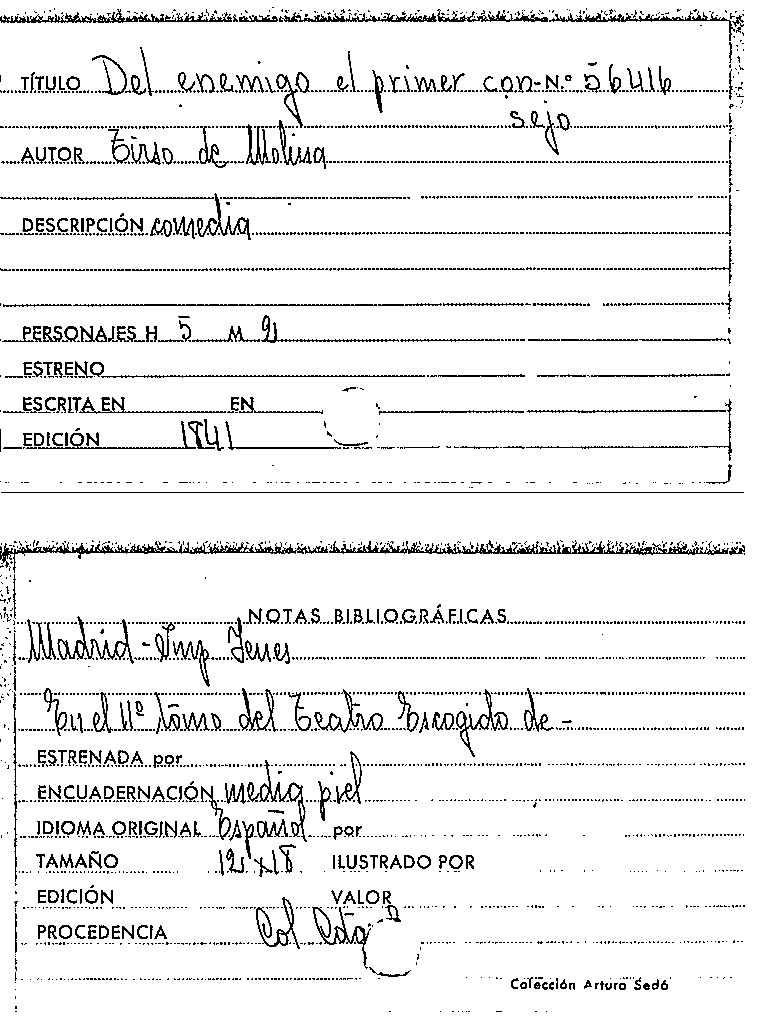 TÍTULO Del enemigo el primer con- N.º 56416
sejo
AUTOR Tirso de Molina
DESCRIPCIÓN comedia
PERSONAJES H 5 M 2
ESTRENO
ESCRITA EN EN
EDICIÓN 1841
NOTAS BIBLIOGRÁFICAS
Madrid - Imp Yenes
En el 11º tomo del Teatro Escogido de -
ESTRENADA por
ENCUADERNACIÓN media piel
IDIOMA ORIGINAL Español por
TAMAÑO 12 x 18 ILUSTRADO POR
EDICIÓN VALOR
PROCEDENCIA Col Cota
Colección Arturo Sedó